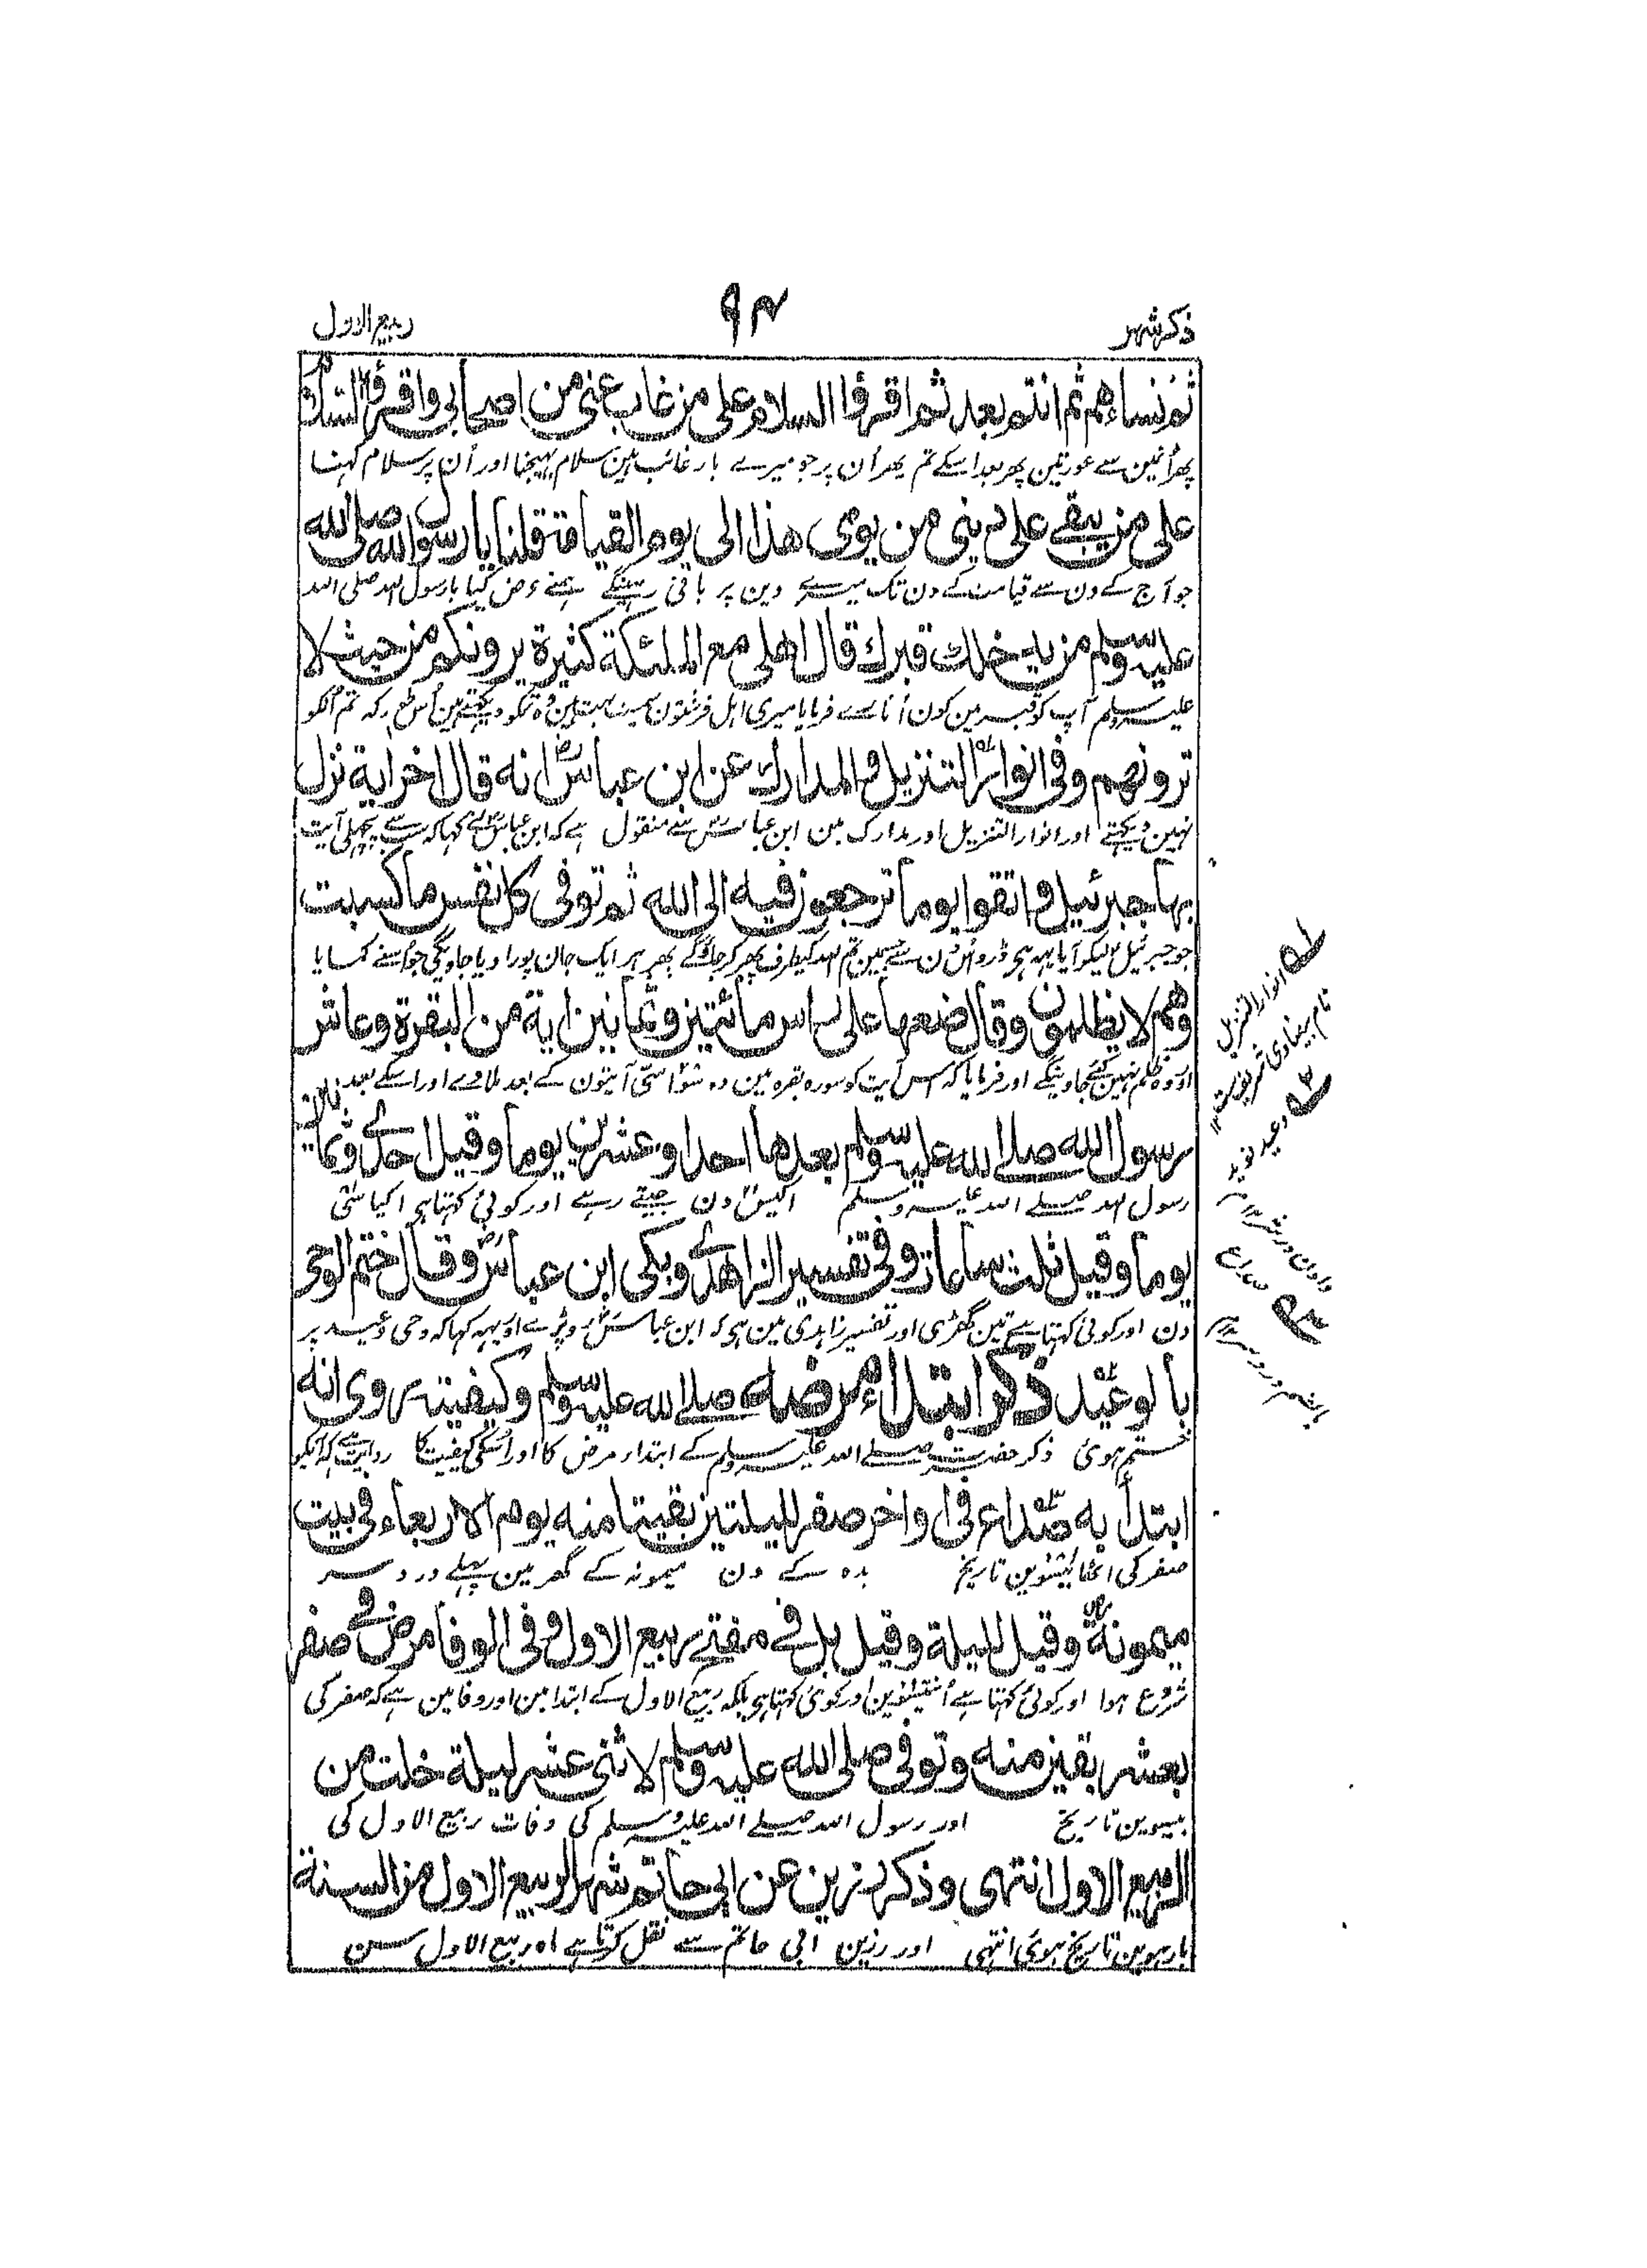 ذکر شہر
۹۴
ربیع الاول
ثم نساءهم ثم انتم بعد ثم اقرؤا السلام على من غاب عني من اصحابي واقرؤا السلام
پھر اُنمین سے عورتین پھر بعد اسکے تم پھر اُن پر جو میرے یار غائب ہین سلام بھیجنا اور اُن پر سلام کہنا
على من يبقے على ديني من يومي هذا الى يوم القيامة قلنا يا رسول الله صلى الله
جو آج کے دن سے قیامت کے دن تک میرے دین پر باقی رہینگے ہمنے عرض کیا یا رسول اللہ صلی اللہ
عليه وسلم من يدخلك قبرك قال اهلي مع الملئكة كثيرة يرونكم من حيث لا
علیہ وسلم آپ کو قبر مین کون اُتارے فرمایا میری اہل فرشتون سمیت بہت ہین وہ تمکو دیکھتے ہین اُس طرح کہ تم اُنکو
ترونهم وفي انوار التنزيل والمدارك عن ابن عباس رض انه قال اخر اية نزل
نہین دیکھتے اور انوار التنزیل اور مدارک مین ابن عباس رض سے منقول ہے کہ ابن عباس نے کہا کہ سب سے پچھلی آیت
بها جبرئيل واتقوا يوما ترجعون فيه الى الله ثم توفى كل نفس ما كسبت
جو جبرئیل لیکر آیا یہہ ہی ڈرو اُس دن سے جسمین تم اللہ کیطرف پھر کر جاؤگے پھر ہر ایک جان پورا دیا جاویگی جو اُسنے کمایا
وهم لا يظلمون وقال ضعها على راس مائتين وثمانين اية من البقرة وعاش
اور وہ ظلم نہین کئے جاوینگے اور فرمایا کہ اس آیت کو سورہ بقرہ مین دو سو اسّی آیتون کے بعد ملا دے اور اسکے بعد
رسول الله صلے الله عليه وسلم بعدها احدا وعشرين يوما وقيل احدے وثمانين
رسول اللہ صلے اللہ علیہ وسلم اکیس دن جیتے رہے اور کوئی کہتا ہی اکیاسّی
يوما وقيل ثلث ساعات وفي تفسير الزاهدے وبكى ابن عباس رض وقال ختم الوحي
دن اور کوئی کہتا ہے تین گھڑی اور تفسیر زاہدی مین ہی کہ ابن عباس رض رو پڑے اور یہہ کہا کہ وحی وعید پر
بالوعيد ذكر ابتداء مرضه صلے الله عليه وسلم وكيفيته روى انه
ختم ہوئی ذکر حضرت صلے اللہ علیہ وسلم کے ابتداء مرض کا اور اُسکی کیفیت کا روایت ہے کہ آپکو
ابتدأ به صداع في اواخر صفر لليلتين بقيتا منه يوم الاربعاء في بيت
صفر کی اٹھائیسوین تاریخ بدہ کے دن میمونہ کے گھر مین پہلے درد سر
ميمونة رض وقيل لليلة وقيل بل فے مفتتح ربيع الاول وفي الوفا مرض فے صفر
شروع ہوا اور کوئی کہتا ہے اُنتیسوین اور کوئی کہتا ہی بلکہ ربیع الاول کے ابتدا مین اور وفا مین ہے کہ صفر کی
بعشر بقين منه وتوفي صلى الله عليه وسلم لاثني عشر ليلة خلت من
بیسوین تاریخ اور رسول اللہ صلے اللہ علیہ وسلم کی وفات ربیع الاول کی
الربيع الاول انتهى وذكر رزين عن ابي حاتم شهر الربيع الاول من السنة
بارہوین تاریخ ہوئی انتہی اور رزین ابی حاتم سے نقل کرتا ہے ماہ ربیع الاول سن
انوار التنزیل
نام بیضاوی شریفست
وعید نوید
دادن در شر
صداع